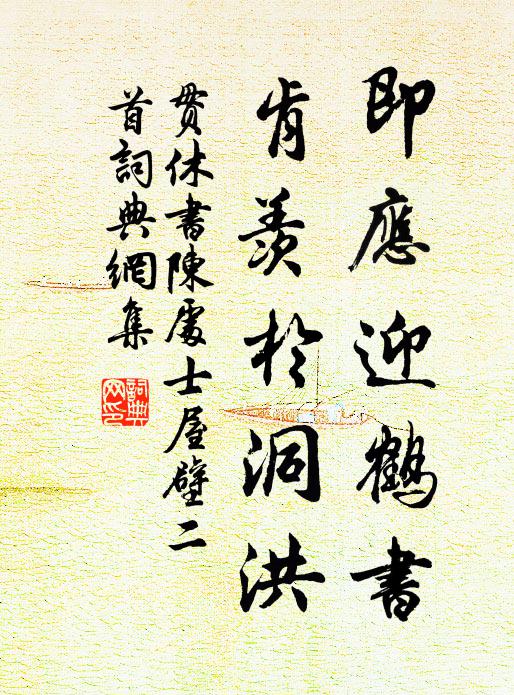 即應迎鶴書
肯羨於洞洪
貫休書陳處士屋壁二
首詞典網集
詞典
网印